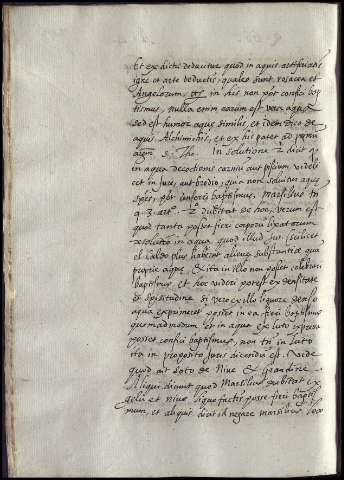 Et ex dictis deducitur quod in aquis artificialibus
igne et arte deductis, quales sunt, rosacea et
Angelorum, in his non põt confici bap
tismus, nulla enim earum est vere aqua
sed est humor aquæ similis, et idem dico de
aquis Alchimicis, et ex his patet ad
S. Tho. In solutione 2 dicit q
in aqua decoctionis carniũ aut pisciũm, videli
cet in jure, aut brodio, quia non solvitur aquæ
spẽs, põt conferri baptismus. Marsilius in
q. 3. artº. 2 dubitat de hoc, verum est
quod tanta posset fieri corporũ lixatorum
resolutio in aqua quod illud jus, scilicet
el caldo plus haberet alienæ substantiæ quã
propriæ aquæ, & ita in illo non posset celebrari
baptismus, et hoc videri potest ex densitate
et spisitudine si vero ex illo liquore denso
aqua exprimeret posset in ea fieri baptismus
quemadmodum et in aqua ex luto expressa
posset confici baptismus, non tñ in luto
ita in proposito jure dicendũ est. Vide
quod ait Soto de Nive & Grandine
Aliqui dicunt quod Marsilius dubitat ex
gelu et nive liquefactis posse fieri baptis
mum, et aliqui dicũt id negare Marsilius